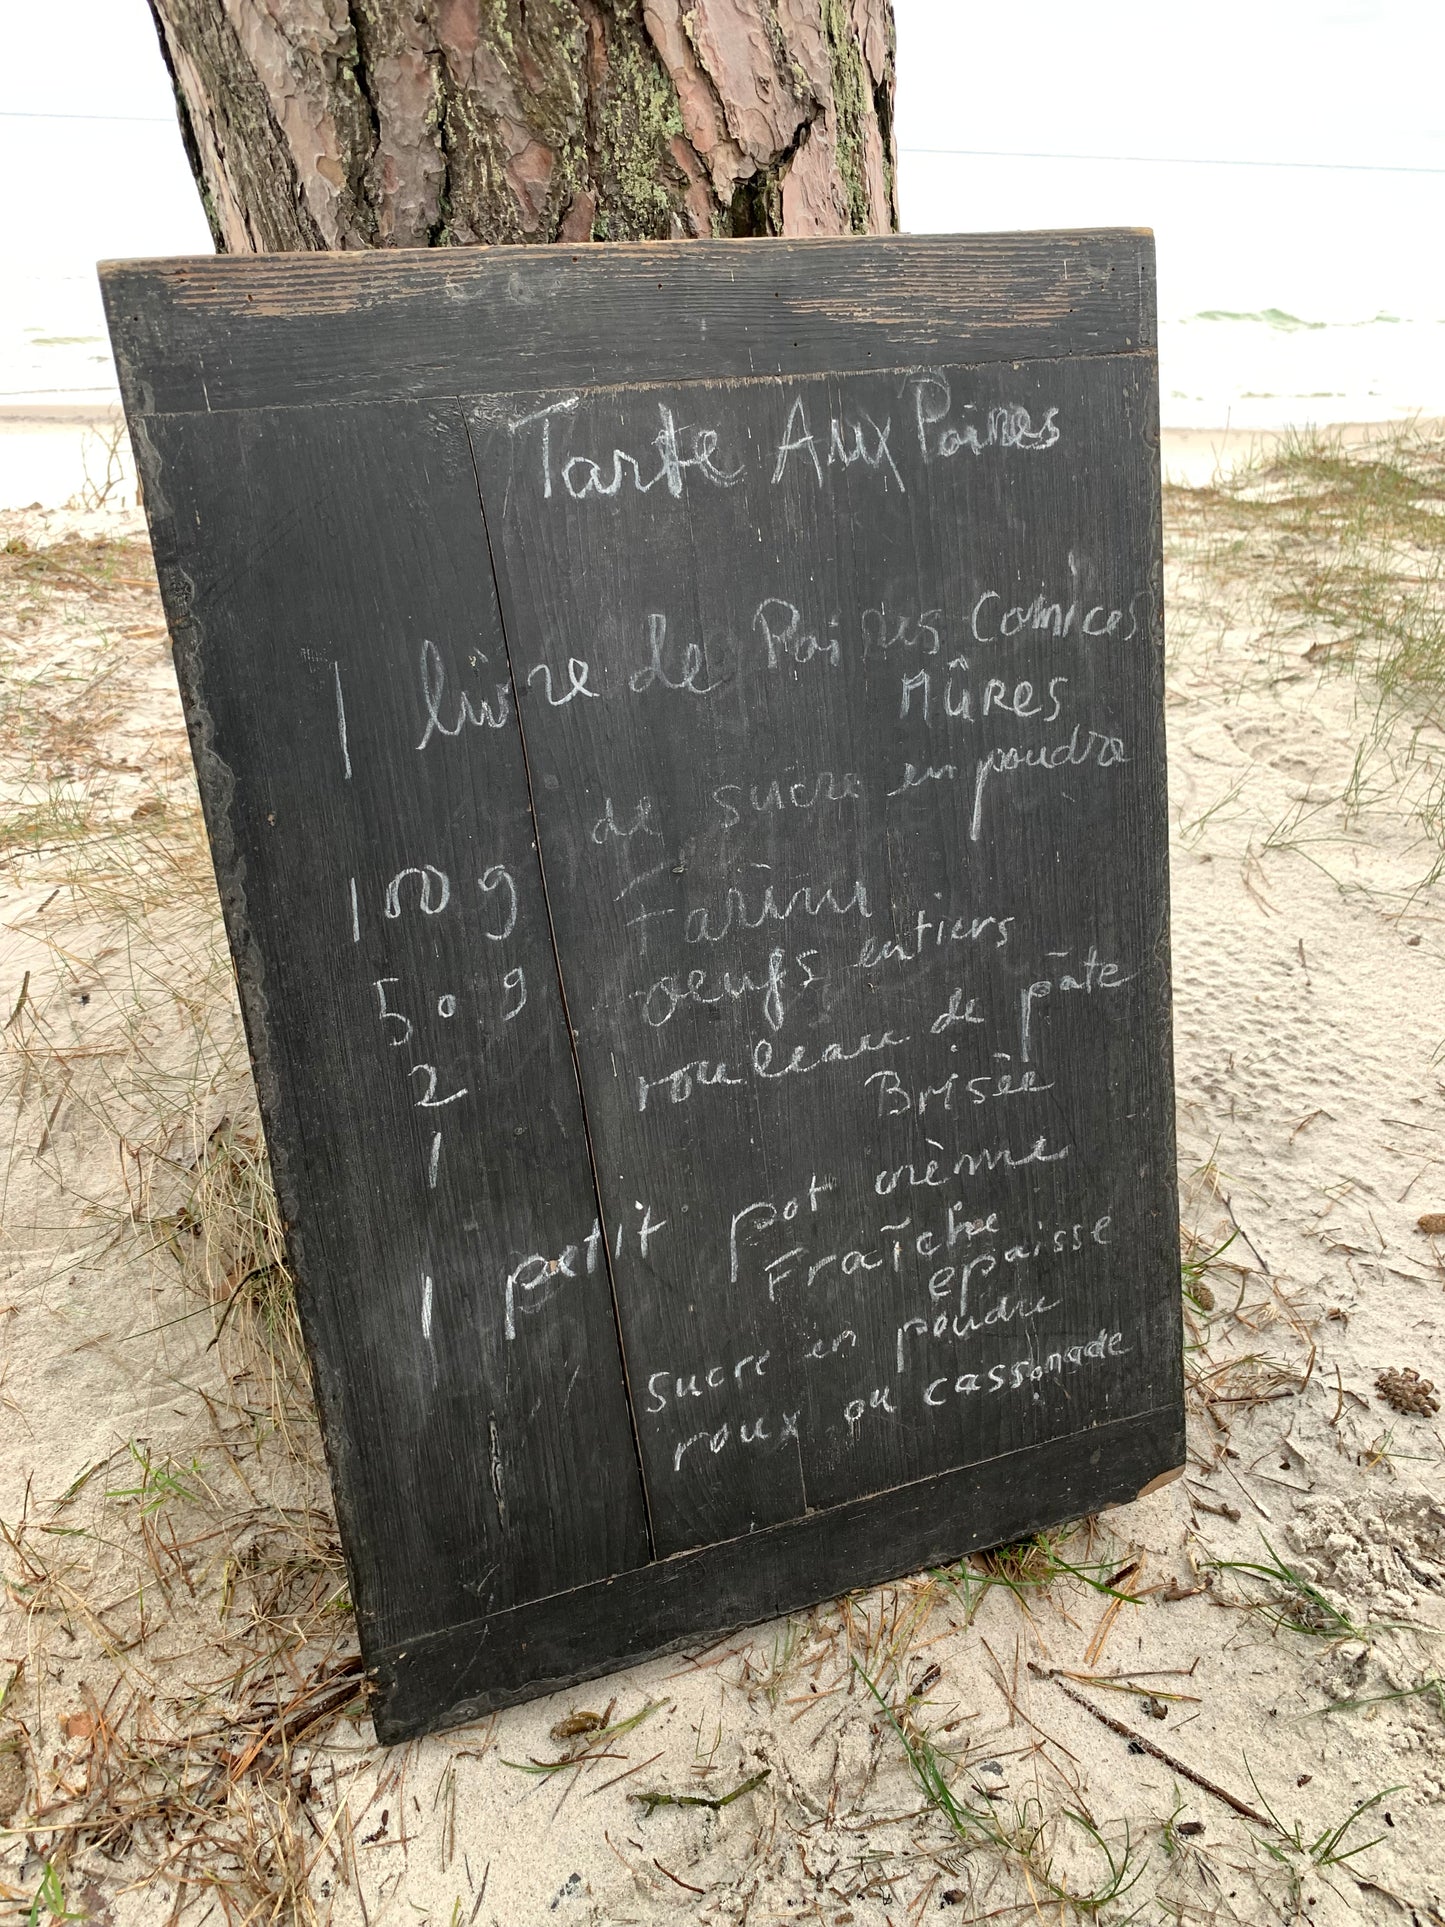 Tarte Aux Poires
1 livre de Poires Comices
MÛRES
100 g de sucre en poudre
50 g Farine
2 oeufs entiers
1 rouleau de pâte
Brisée
1 petit pot crème
Fraîche
epaisse
sucre en poudre
roux ou cassonade